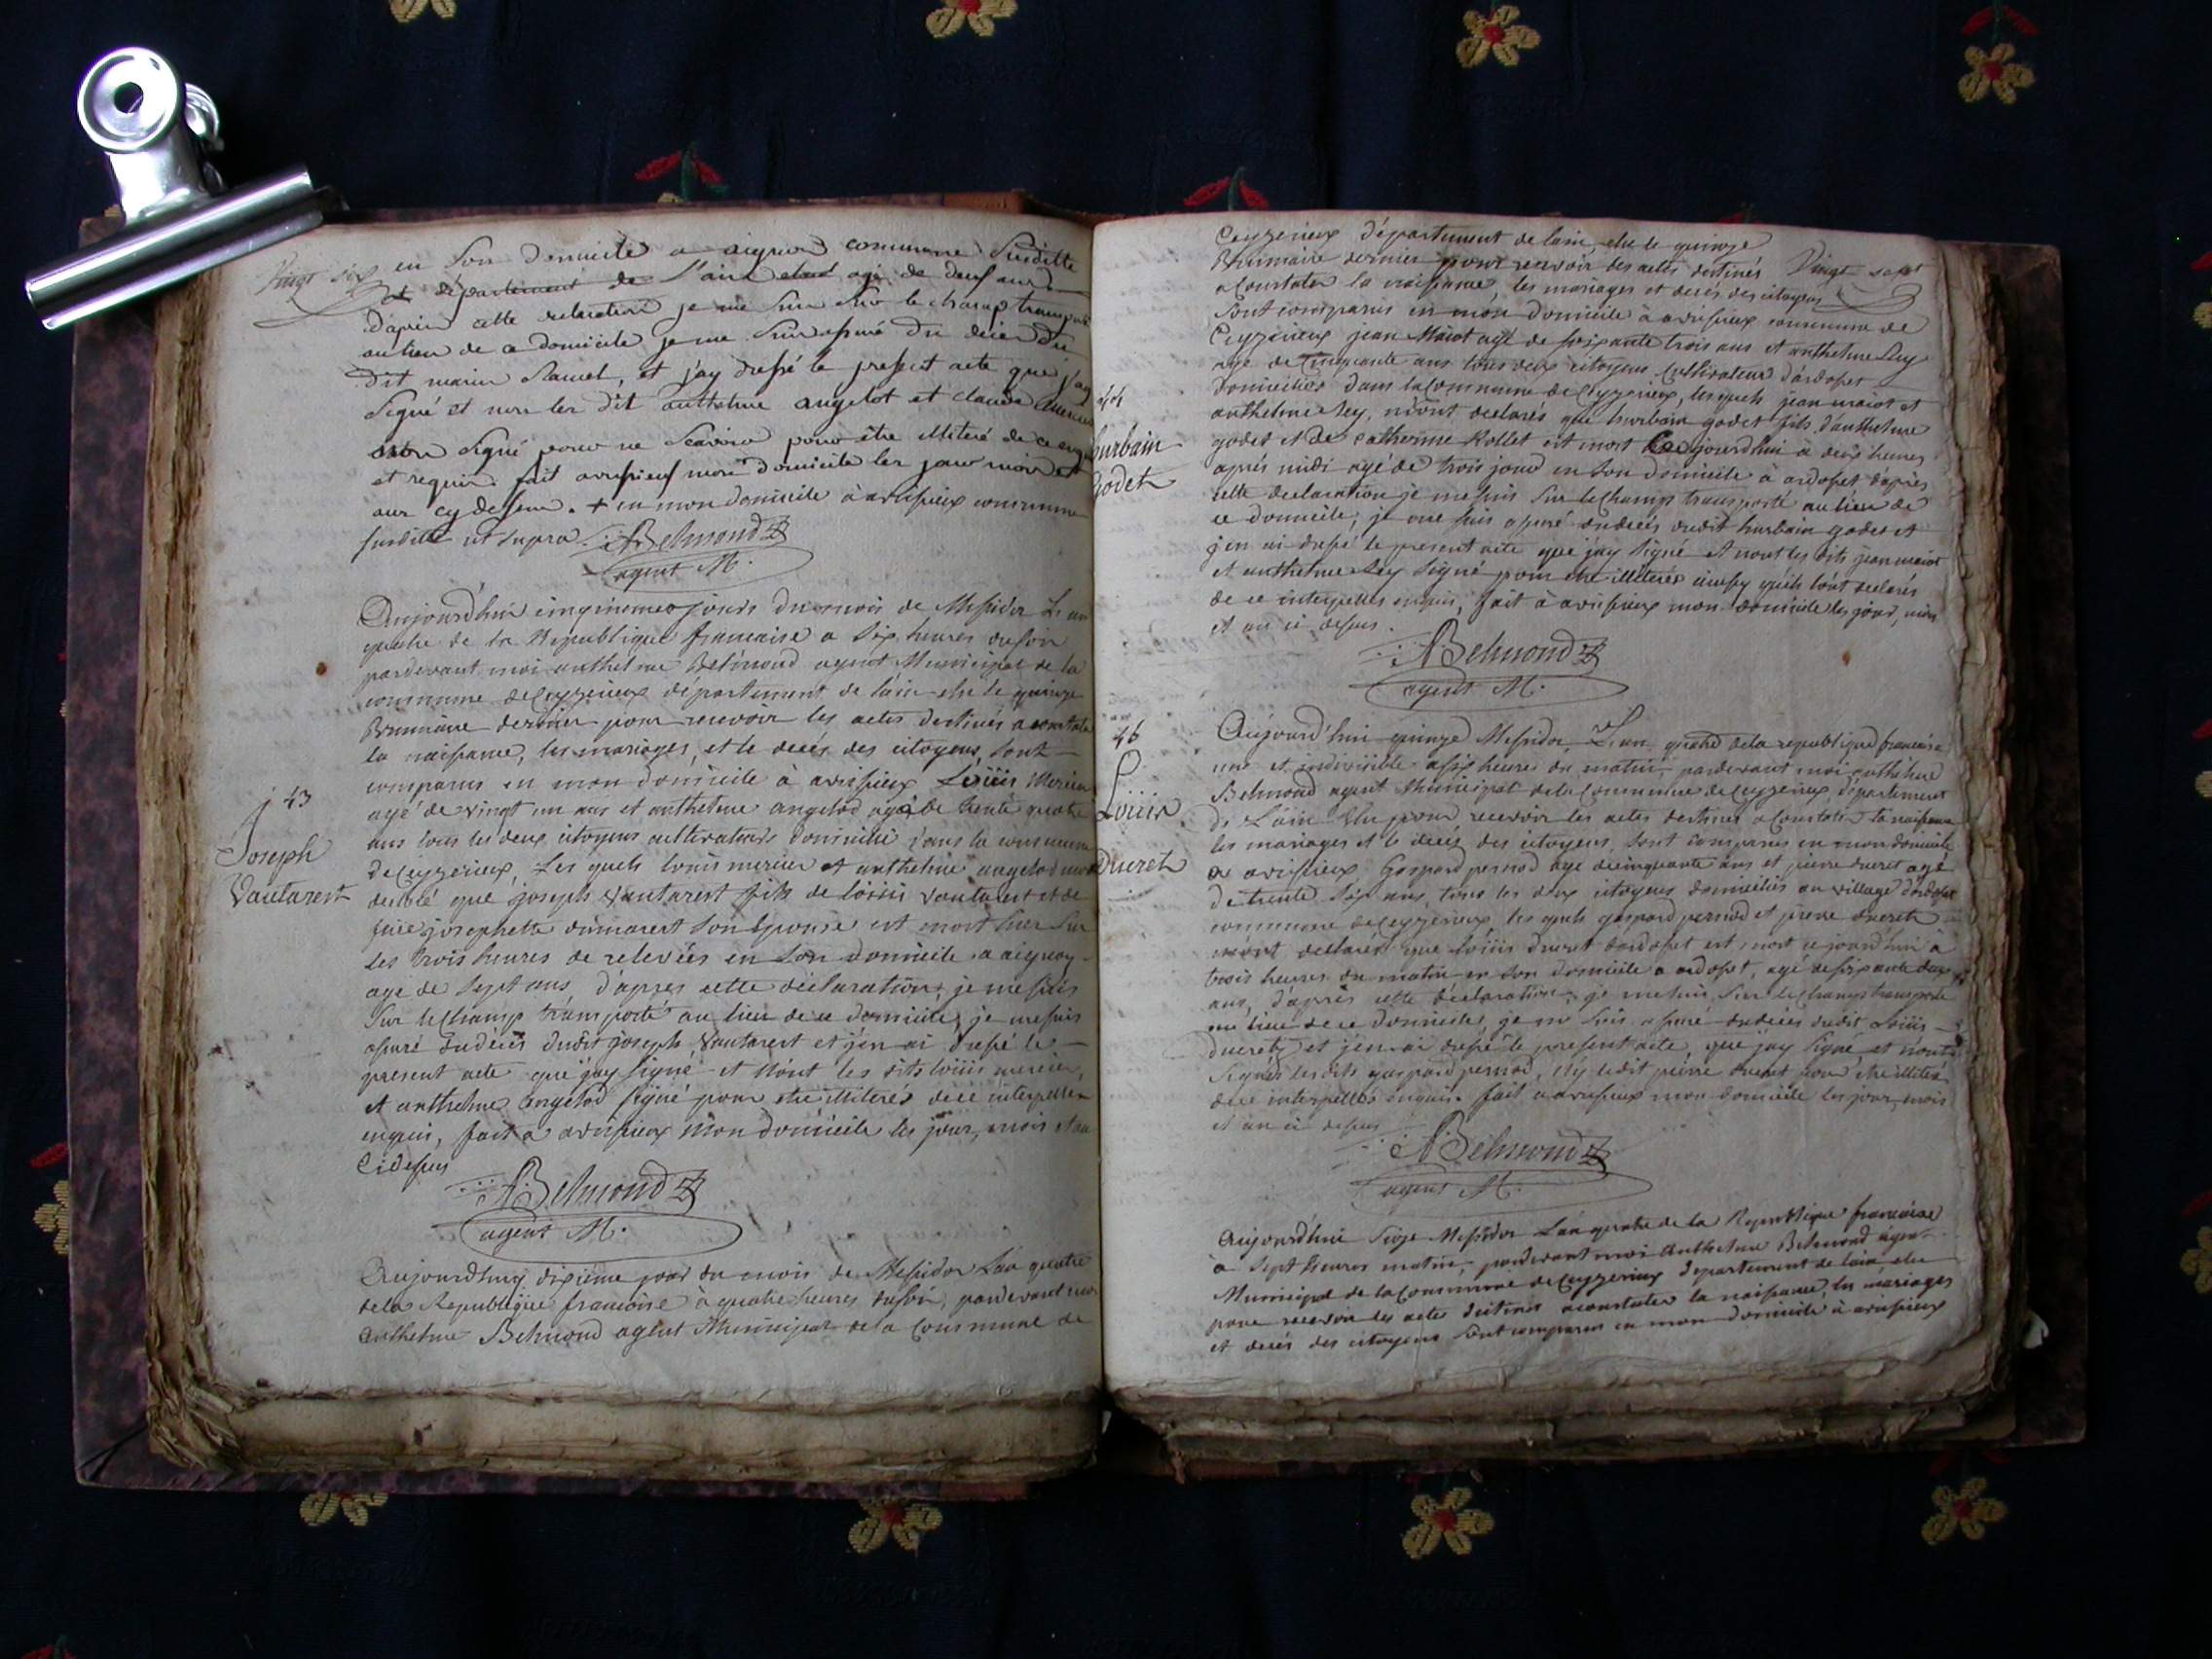 Vingt six
en son domicile a aignoz commune susditte
et département de l'ain agé de deux ans
d'après cette declaration je me suis sur le champ transporté
au lieu de ce domicile je me suis assuré du décès du
dit marin Ramel, et j'ay dressé le present acte que j'ay
signé et non les dit anthelme angelot et claude mercier
signé pour ne scavoir pour être illiteré de ce enquis
et requis. fait avrissieux mon domicile les jour mois et
an cy dessus. + en mon domicile à avrissieux commune
susditte ut supra. ABelmond
agent M.
Aujourd'hui cinquieme jours du mois de Messidor L'an
quatre de la Republique francaise a six heures du soir
pardevant moi anthelme Belmond agent Municipal de la
commune de Ceyzerieux département de l'ain elu le quinze
Brumaire dernier pour recevoir les actes destinés a constater
la naissance, les mariages, et le decés des citoyens, sont
comparus en mon domicile à avrissieux Loüis Mercier
agé de vingt un ans et anthelme angelod agé de trente quatre
ans tous les deux citoyens cultivateurs domicilié dans la commune
de Ceyzerieux, Les quels louis mercier et anthelme angelod m'ont
declaré que joseph Vautarest fils de loüis Vautarest et de
feüe josephette dumarest son épouse est mort hier sur
les trois heures de relevées en son domicile a aignoz
age de sept ans d'apres cette déclaration, je me suis
sur le champ transporté au lieu de ce domicile, je me suis
assuré du décés dudit joseph Vautarest et j'en ai dressé le
present acte que j'ay signé et n'ont les dits loüis mercier,
et anthelme angelod signé pour etre illiterés de ce interpellés
enquis, fait a avrissieux mon domicile les jour, mois et an
ci dessus
ABelmond
agent M.
43
Joseph
Vautarest
Aujourdhuy dixieme jour du mois de Messidor L'an quatre
de la Republique francoise à quatre heures du soir, pardevant moi
anthelme Belmond agent Municipal de la Commune de
Ceyzerieux département de l'ain, elu le quinze
Vingt sept
Brumaire dernier pour recevoir les actes destinés
a Constater la naissance, les mariages et decés des citoyens
sont comparus en mon domicile à avrissieux commune de
Ceyzerieux jean Maiot agé de soixante trois ans et anthelme Sey
agé de Cinquante ans tous deux citoyens Cultivateur d'ardosset
Domiciliés dans la Commune de Ceyzerieux, les quels jean maiot et
anthelme Sey, m'ont declarés que hurbain godet fils d'anthelme
godet et de Catherine Rollet est mort Ce jourdhui a deux heures
après midi agé de trois jours en son domicile à ardosset d'après
cette declaration je me suis sur le champ transporté au lieu de
ce domicile, je me suis assuré du decés dudit hurbain godet et
j'en ai dressé le present acte que j'ay signé et n'ont les dits jean maiot
et anthelme Sey signé pour etre illiterés ainsy qu'ils l'ont declarés
de ce interpellés enquis, fait à avrissieux mon domicile les jour, mois
et an ci dessus.
ABelmond
agent M.
44
hurbain
Godet
Aujourd'hui quinze Messidor L'an quatre de la republique francaise
une et indivisible a six heures du matin pardevant moi anthelme
Belmond agent Municipal de la Commune de Ceyzerieux, département
de L'ain Elu pour recevoir les actes destinés a Constater la naissance
les mariages et le decés des citoyens, sont comparus en mon domicile
a avrissieux, Gaspard pernod age de cinquante ans et pierre ducret agé
de trente six ans, tous les deux citoyens domiciliés au village d'ardosset
commune de Ceyzerieux, les quels gaspard pernod et pierre ducret
m'ont declarés que loüis ducret d'ardosset est mort ce jourd'hui à
trois heures du matin en son domicile a ardosset, agé de soixante deux
ans, d'après cette déclaration, je me suis sur le champ transporté
au lieu de ce domicile, je me suis assuré du decés dudit Loüis
ducret, et j'en ai dressé le present acte, que j'ay signé et n'ont
signés lesdits gaspard pernod, n'y ledit pierre ducret pour etre illiteré
de ce interpellés enquis. fait a avrissieux mon domicile les jour, mois
et an ci dessus
ABelmond
agent M.
46
Loüis
Ducret
Aujourd'hui Seize Messidor L'an quatre de la Republique francaise
à Sept heures matin, pardevant moi Anthelme Belmond agent
Municipal de la Commune de Ceyzerieux departement de l'ain, elu
pour recevoir les actes destinés a constater la naissance, les mariages
et decés des citoyens sont comparus en mon domicile à avrissieux